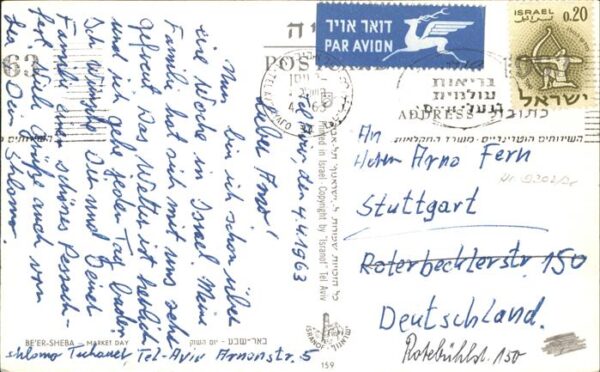 Tel Aviv, den 4.4.1963
Lieber Arno!
Nun bin ich schon über
eine Woche in Israel. Meine
Familie hat sich mit uns sehr
gefreut. Das Wetter ist herrlich
und ich gehe jeden Tag baden
Ich wünsche Dir und Deiner
Familie einen schönes Pessach-
fest. Viel Grüße auch von
Dein Shlomo.
BE'ER-SHEBA - MARKET DAY
באר-שבע - יום השוק
Shlomo Tel-Aviv Arnonstr. 5
Printed in Israel Copyright by 'Isranof' Tel Aviv
ISRANOF
ישראנוף
159
דואר אויר
PAR AVION
ISRAEL
0.20
ישראל
POST
TEL AVIV YAFO
4.63
63
בריאות
עולמית
ADDRESS כתובת
השירותים הוטרינריים - משרד החקלאות
An
Herrn Arno Fern
Stuttgart
Roterbecklerstr. 150
Deutschland.
Rotebühlst. 150